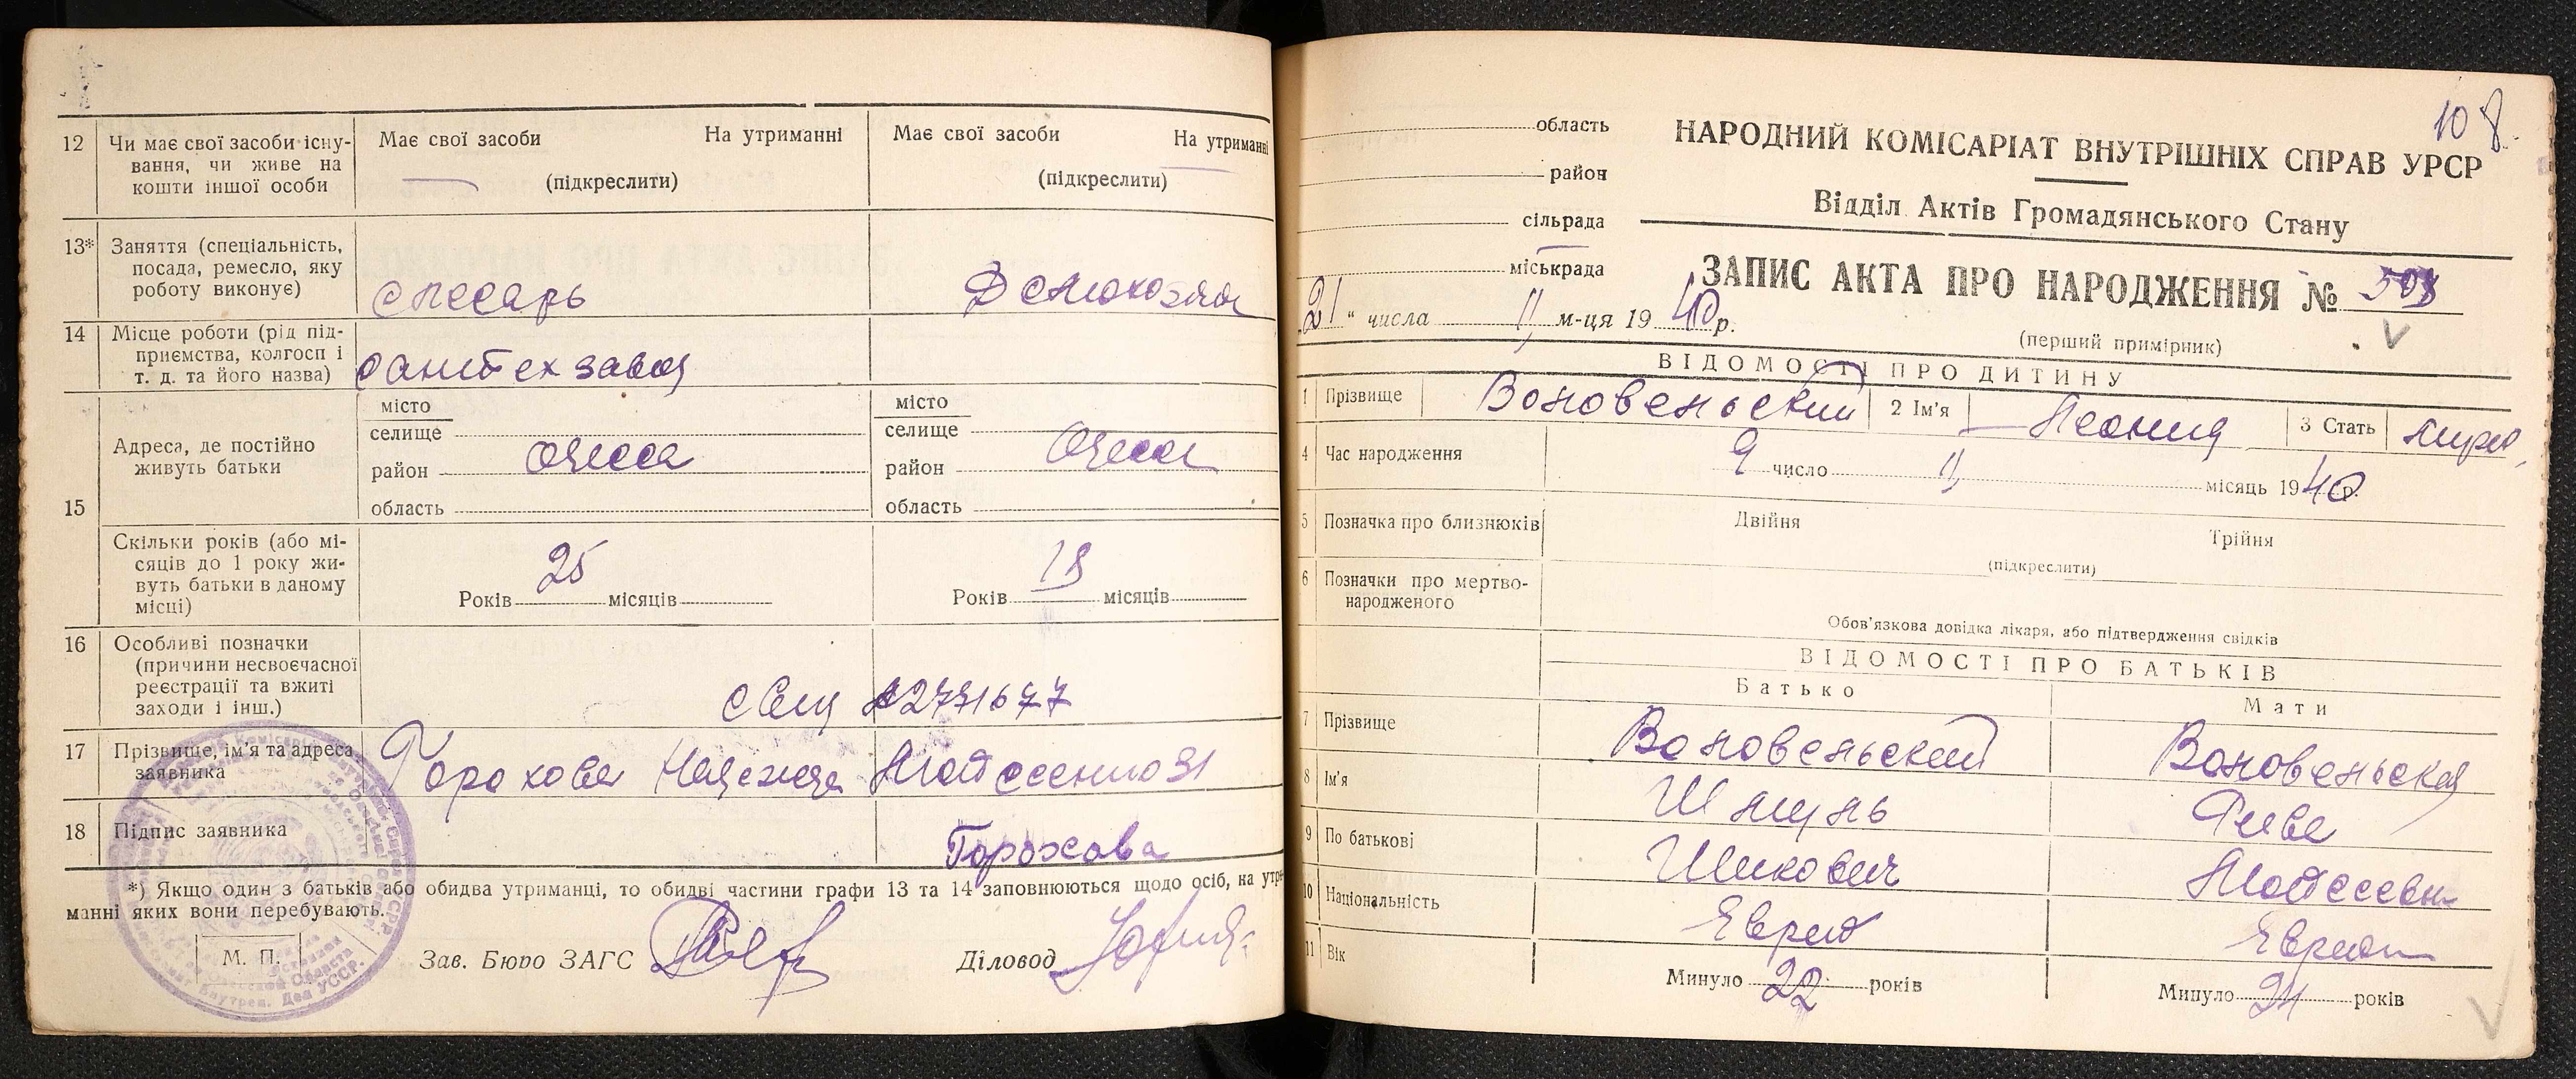 12 Чи має свої засоби існу-
вання, чи живе на
кошти іншої особи
Має свої засоби На утриманні
(підкреслити)
Має свої засоби На утриманні
(підкреслити)
13* Заняття (спеціальність,
посада, ремесло, яку
роботу виконує)
слесарь
Домохозяй
14 Місце роботи (рід під-
приємства, колгосп і
т. д. та його назва)
Санитех завод
15 Адреса, де постійно
живуть батьки
місто
селище
район Одесса
область
місто
селище
район Одесса
область
Скільки років (або мі-
сяців до 1 року жи-
вуть батьки в даному
місці)
Років 25 місяців
Років 18 місяців
16 Особливі позначки
(причини несвоєчасної
реєстрації та вжиті
заходи і інш.)
17 Прізвище, ім'я та адреса
заявника
Горохова Надежда
18 Підпис заявника
Горохова
*) Якщо один з батьків або обидва утриманці, то обидві частини графи 13 та 14 заповнюються щодо осіб, на утри-
манні яких вони перебувають.
М. П.
Зав. Бюро ЗАГС
Діловод
108
область
район
сільрада
міськрада
НАРОДНИЙ КОМІСАРІАТ ВНУТРІШНІХ СПРАВ УРСР
Відділ Актів Громадянського Стану
ЗАПИС АКТА ПРО НАРОДЖЕННЯ №
21 " числа 11 м-ця 1940 р.
(перший примірник)
ВІДОМОСТІ ПРО ДИТИНУ
1 Прізвище Воловеньский 2 Ім'я Леонид 3 Стать
4 Час народження 9 число 11 місяць 1940 р.
5 Позначка про близнюків Двійня Трійня
(підкреслити)
6 Позначки про мертво-
народженого
Обов'язкова довідка лікаря, або підтвердження свідків
ВІДОМОСТІ ПРО БАТЬКІВ
Батько Мати
7 Прізвище Воловеньский Воловеньская
8 Ім'я Шмуль Рива
9 По батькові Шикович Мойсеевн
10 Національність Еврей Еврей
11 Вік Минуло 22 років Минуло 24 років